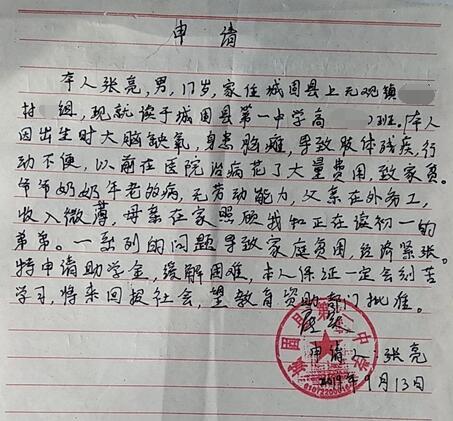 申请
本人张亮,男,17岁,家住城固县上元观镇
村 组,现就读于城固县第一中学高 )班,本人
因出生时大脑缺氧,身患脑瘫,导致肢体残疾,行
动不便,以前在医院治病花了大量费用,致家贫。
爷爷奶奶年老多病,无劳动能力,父亲在外务工,
收入微薄,母亲在家照顾我和正在读初一的
弟弟。一系列的问题导致家庭负困,经济紧张。
特申请助学金,缓解困难,本人保证一定会刻苦
学习,将来回报社会,望教育资助部门批准。
城固县第一中学
申请人:张亮
2019年9月13日